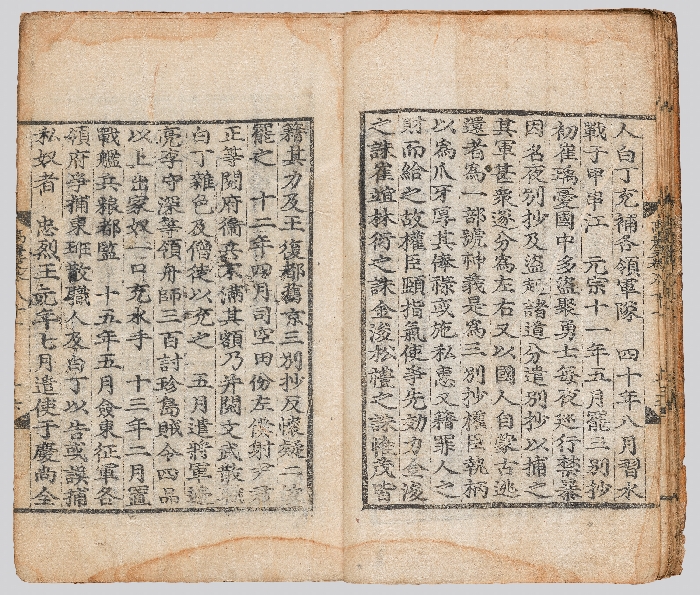 人白丁充補各領軍隊　四十年八月習水
戰于甲串江　元宗十一年五月罷三別抄
初崔瑀憂國中多盜聚勇士每夜巡行禁暴
因名夜別抄及盜起諸道分遣別抄以捕之
其軍甚衆遂分爲左右又以國人自蒙古逃
還者爲一部號神義是爲三別抄權臣執柄
以爲爪牙厚其俸祿或施私惠又籍罪人之
財而給之故權臣頤指氣使爭先効力金浚
之誅崔竩林衍之誅金浚松禮之誅惟茂皆
籍其力及王復都舊京三別抄反懷疑二
罷之　十二年四月司空田份左僕射尹君
正等閱府衛兵不滿其額乃幷閱文武散
白丁雜色及僧徒以充之　五月遣將軍
亮李守深等領舟師三百討珍島賊令四品
以上出家奴一口充水手　十三年二月置
戰艦兵粮都監　十五年五月僉東征軍各
領府爭補東班散職人及白丁以告或誤捕
私奴者　忠烈王元年七月遣使于慶尚全